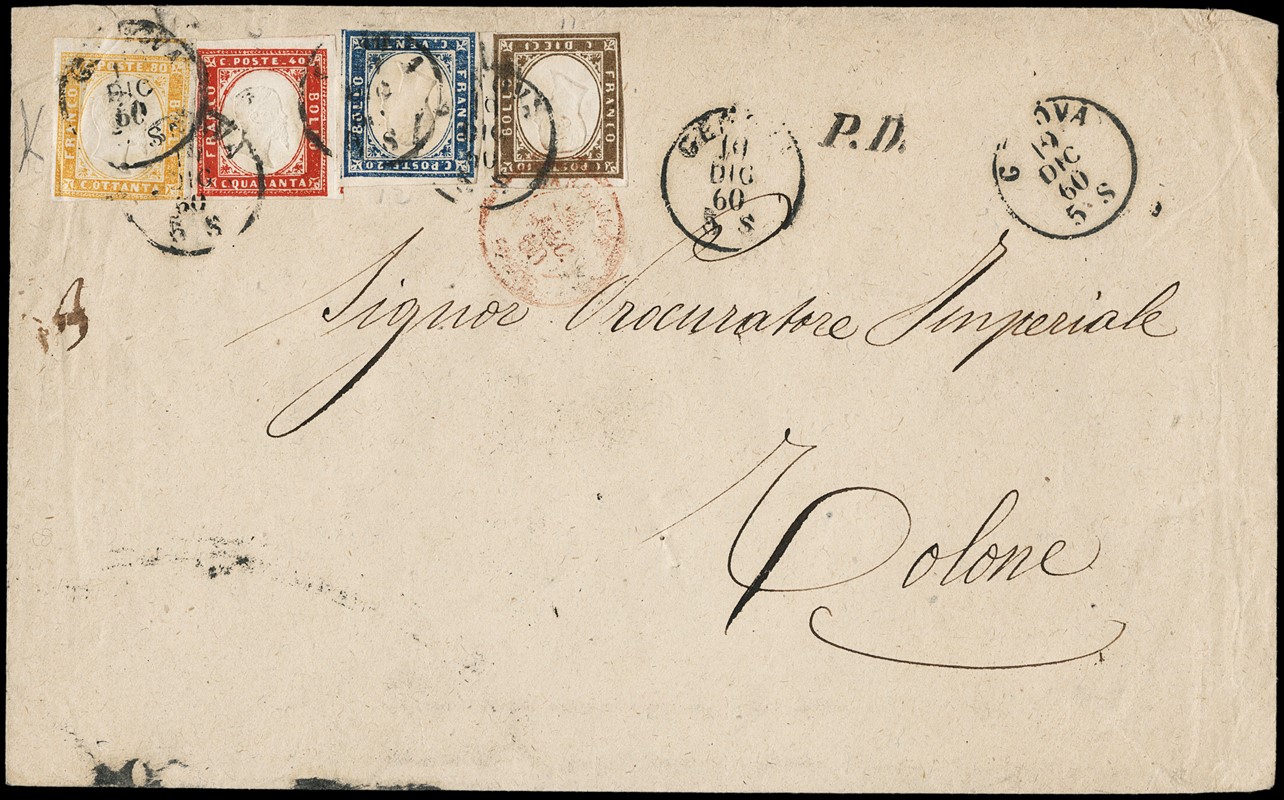 C. POSTE. 80
FRANCO
BOLLO
C. OTTANTA
C. POSTE. 40
FRANCO
BOLLO
C. QUARANTA
C. VENTI
BOLLO
FRANCO
C. POSTE. 20
C. DIECI
BOLLO
FRANCO
C. POSTE. 10
GENOVA
DIC
60
S
DIC
60
5 S
GENOVA
19
DIC
60
5 S
P.D.
GENOVA
19
DIC
60
5 S
Signor Procuratore Imperiale
Tolone